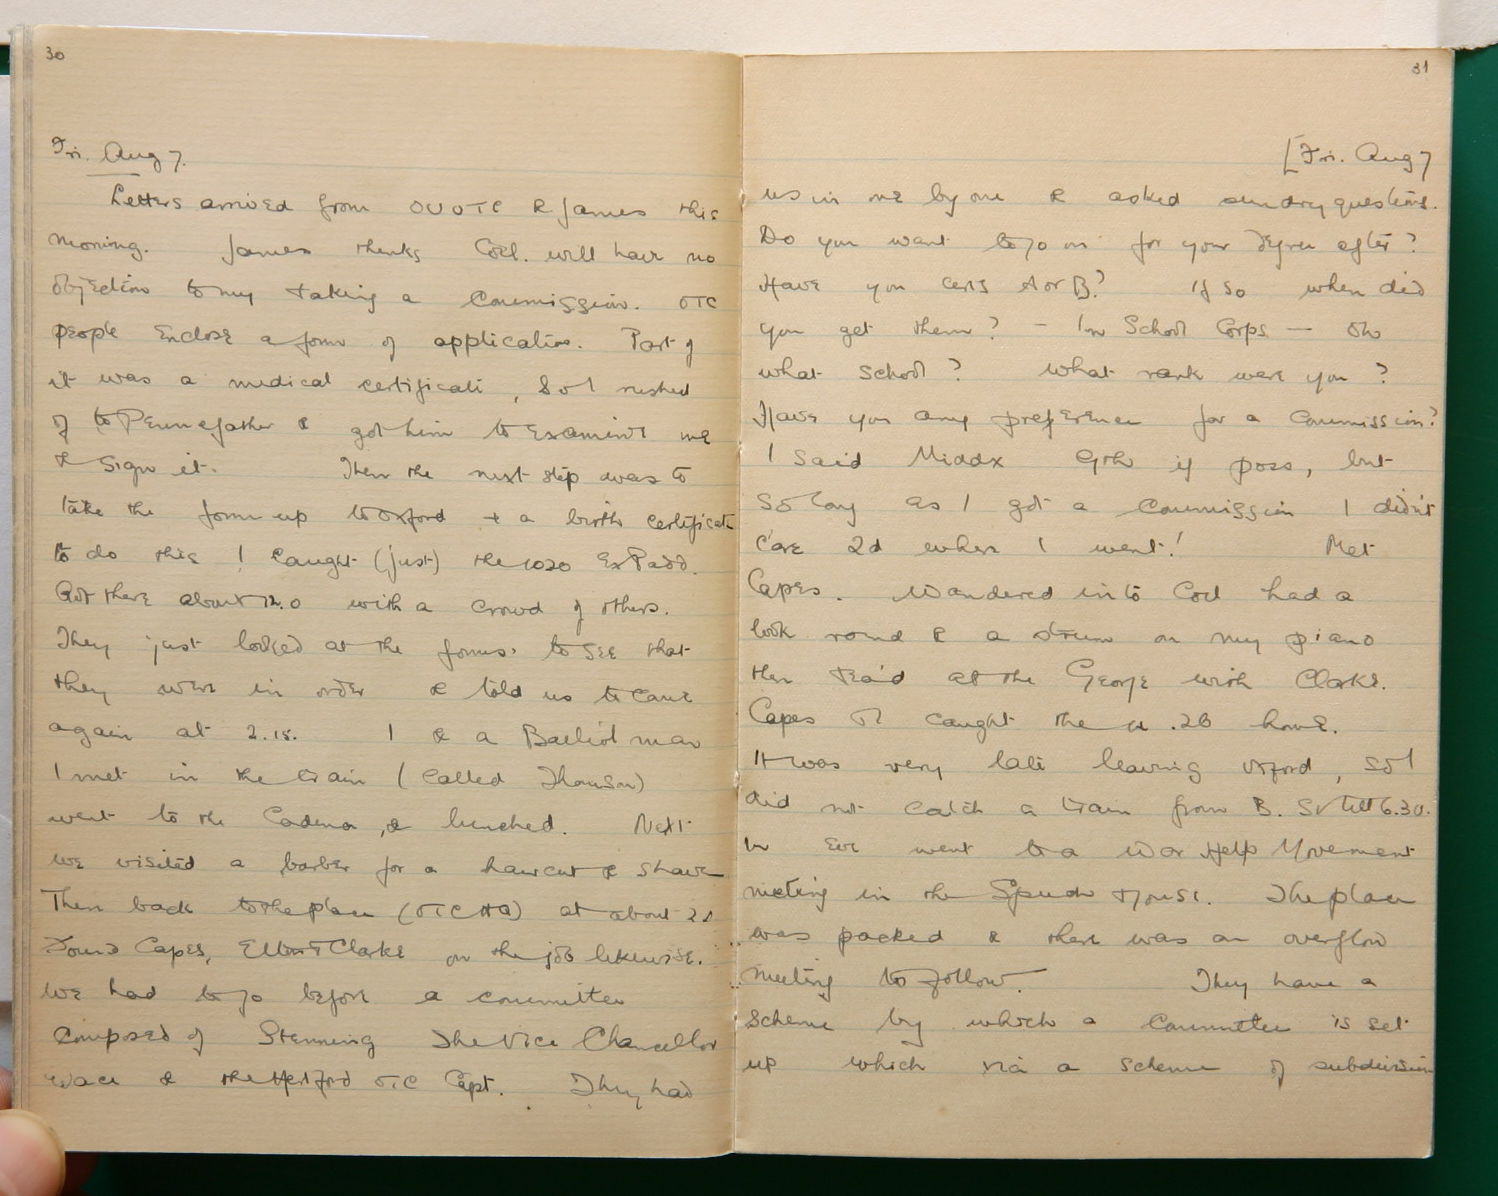 30
Fri. Aug 7.
Letters arrived from OUOTC & James this
morning. James thinks Coll. will have no
objection to my taking a Commission. OTC
people enclose a form of application. Part of
it was a medical certificate, so I rushed
off to Pennefather & got him to examine me
& sign it. Then the next step was to
take the form up to Oxford + a birth certificate
to do this! Caught (just) the 1020 Ex Padd.
Got there about 12.0 with a crowd of others.
They just looked at the forms to see that
they were in order & told us to come
again at 2.15. I & a Balliol man
I met in the train (called Thomson)
went to the Cadena & lunched. Next
we visited a barber for a haircut & shave
Then back to the place (OTC HQ) at about 2
Found Capes, Elliot & Clarke on the job likewise.
We had to go before a committee
composed of Stenning The Vice Chancellor
Wace & the Hertford OTC Capt. They had
31
[Fri. Aug 7
us in one by one & asked sundry questions.
Do you want to go on for your degree after?
Have you certs A or B? If so when did
you get them? – In School Corps — Oh
what school? What rank were you?
Have you any preference for a Commission?
I said Middx 9th if poss, but
so long as I got a Commission I didn't
care 2d where I went! Met
Capes. Wandered into Coll had a
look round & a strum on my piano
then tea'd at the George with Clarke.
Capes & I caught the 4.26 home.
It was very late leaving Oxford, so I
did not catch a train from B. St till 6.30.
In Eve went to a War Help Movement
meeting in the Speech House. The place
was packed & there was an overflow
meeting to follow. They have a
scheme by which a Committee is set
up which via a scheme of subdivision